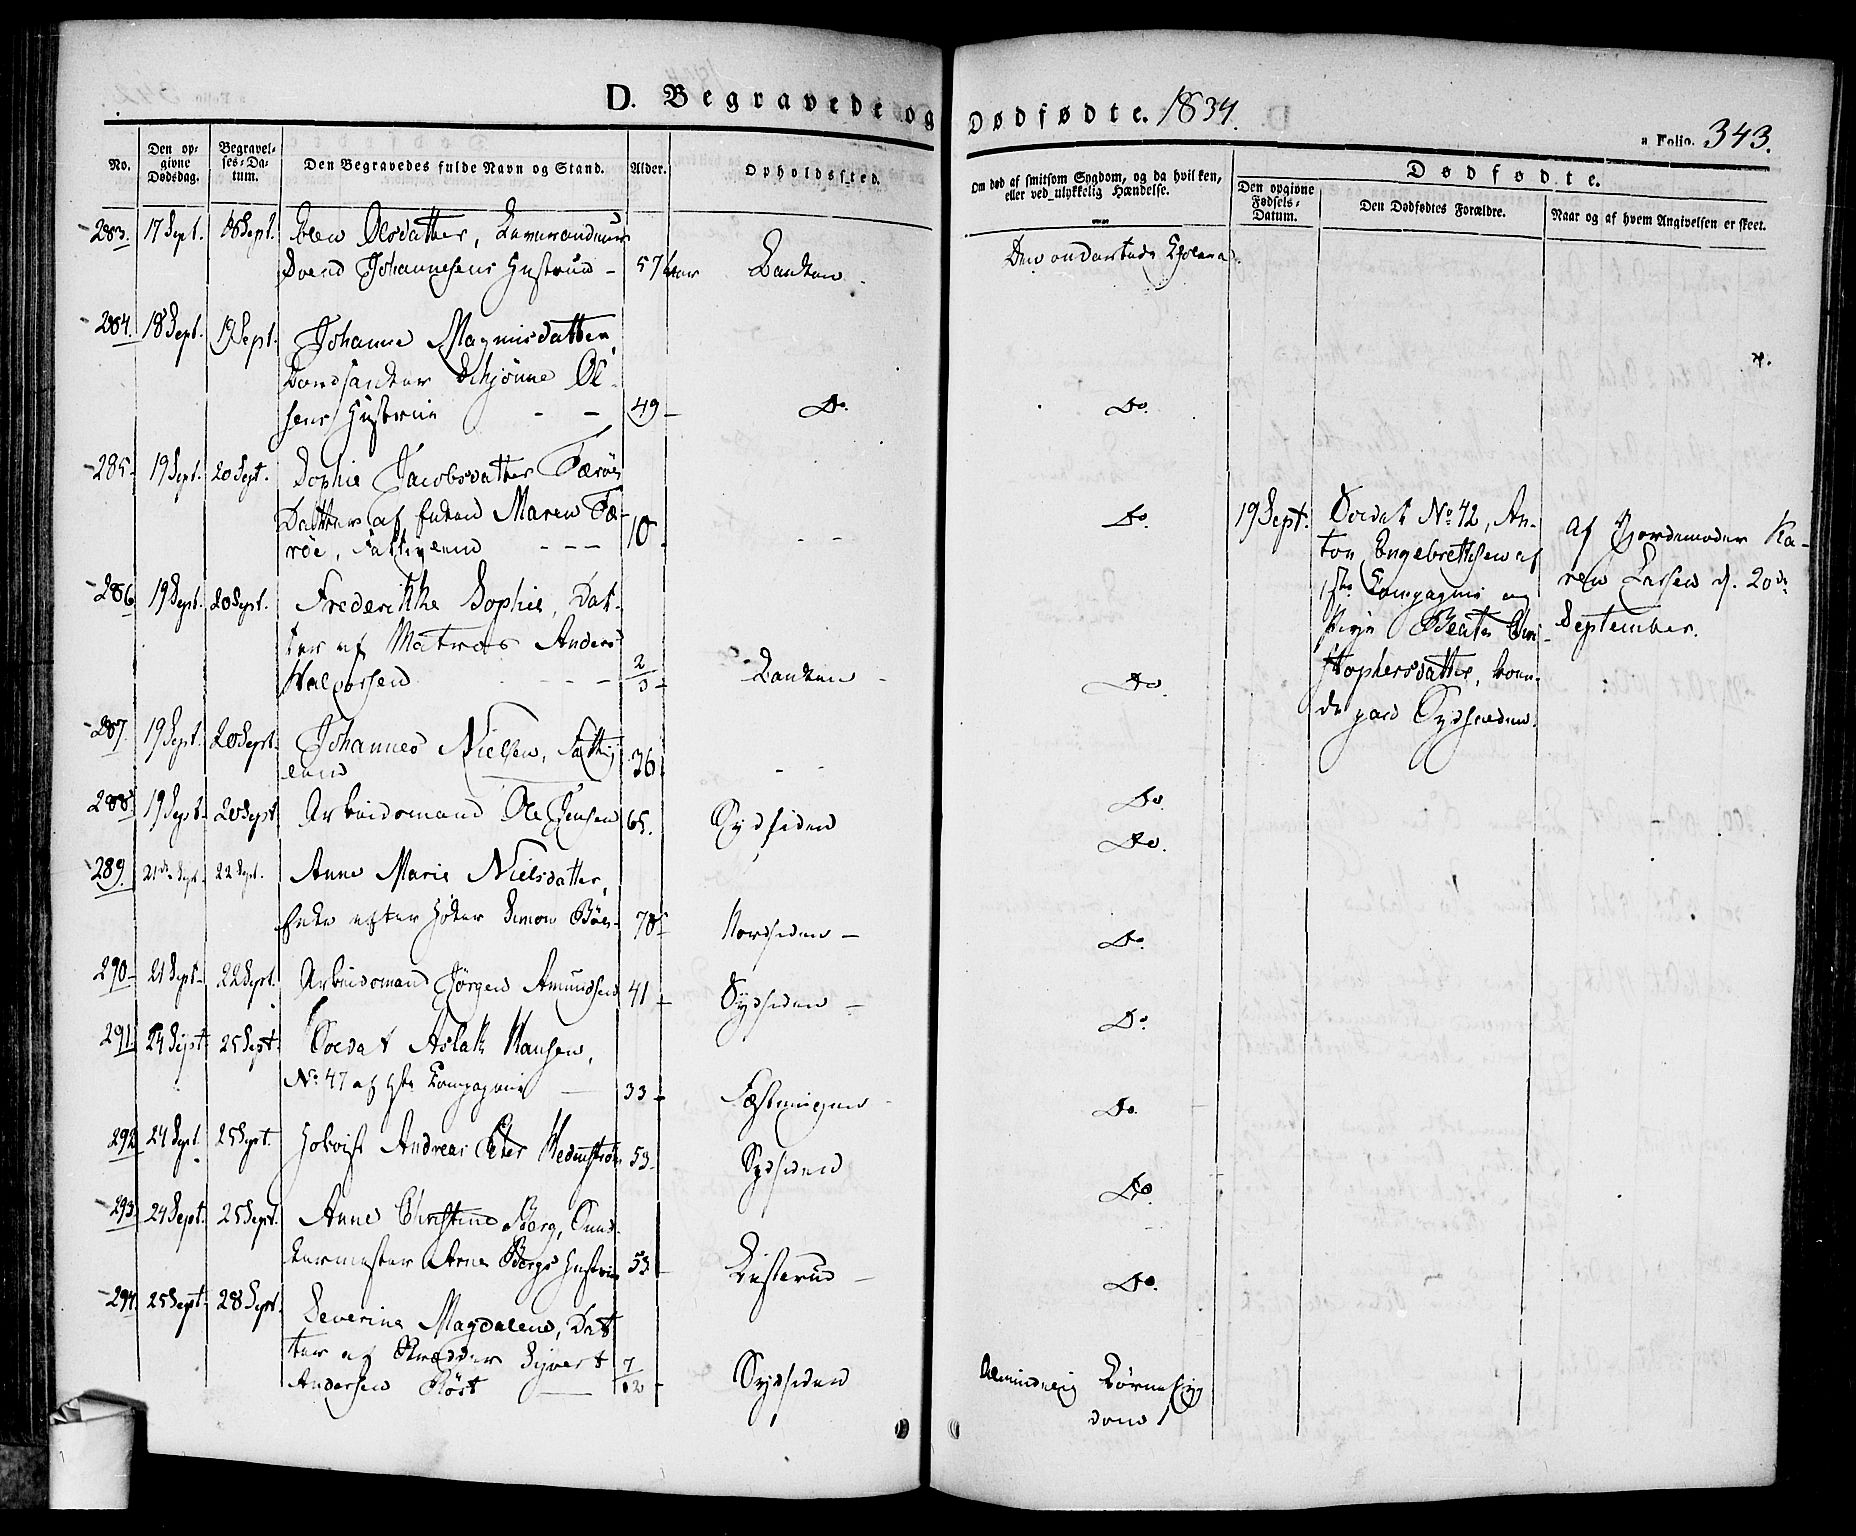 D. Begravede og Dødfødte. 1834.
a Folio. 343.
No.
Den opgivne Dødsdag.
Begravelses-Datum.
Den Begravedes fulde Navn og Stand.
Alder.
Opholdssted.
Om død af smitsom Sygdom, og da hvilken, eller ved ulykkelig Hændelse.
Dødfødte.
Den opgivne Fødsels-Datum.
Den Dødfødtes Forældre.
Naar og af hvem Angivelsen er skeet.
283. 17 Sept. 18 Sept. Olsdatter,
Svend Johannesens Hustrue - 57 Aar Banken. Den ondartede Cholera.
284. 18 Sept. 19 Sept. Johanne Magnusdatter,
Ol-
sens Hustrue - - 49 - Do. Do.
285. 19 Sept. 20 Sept. Sophie Jacobsdatter Færöe
Datter af Enken Maren Fæ-
röe, Fattiglem - - - 10. - - Do.
286. 19 Sept. 20 Sept. Frederikke Sophie, Dat-
ter af Matros Anders
Halvorsen - - - 2/3 - Banken - Do.
287. 19 Sept. 20 Sept. Johannes Nielsen, Fattig
lem 36. - - Do.
288. 19 Sept. 20 Sept. Arbeidsmand Ole Jensen 65. Sydsiden Do.
289. 21de Sept. 22 Sept. Anne Marie Nielsdatter,
Enke efter Höker Simon 78 Nordsiden - Do.
290 - 21 Sept. 22 Sept. Arbeidsmand Jörgen Amundsen 41 - Sydsiden - Do.
291. 24 Sept. 25 Sept. Soldat Aslak Hansen,
No. 47 af Compagnie - 33 - Fæstningen - Do.
292. 24 Sept. 25 Sept. Andreas Peter 53. Sydsiden Do.
293. 24 Sept. 25 Sept. Anne Christine Berg, Sned-
kermester Arne Bergs Hustrue 53 - Risterud - Do.
294. 25 Sept. 28 Sept. Severine Magdalene, Dat-
ter af Skrædder Syvert
Andersen Röst - 7/12 - Sydsiden Almindelig Börnesyg
dom
19 Sept. Soldat No. 42, An-
ton Engebrethsen af
1ste Compagnie og
Pige Beate Chri-
stophersdatter, boen-
de paa Sydsiden.
Af Jordemoder Ka-
ren Larsen d. 20de
September.